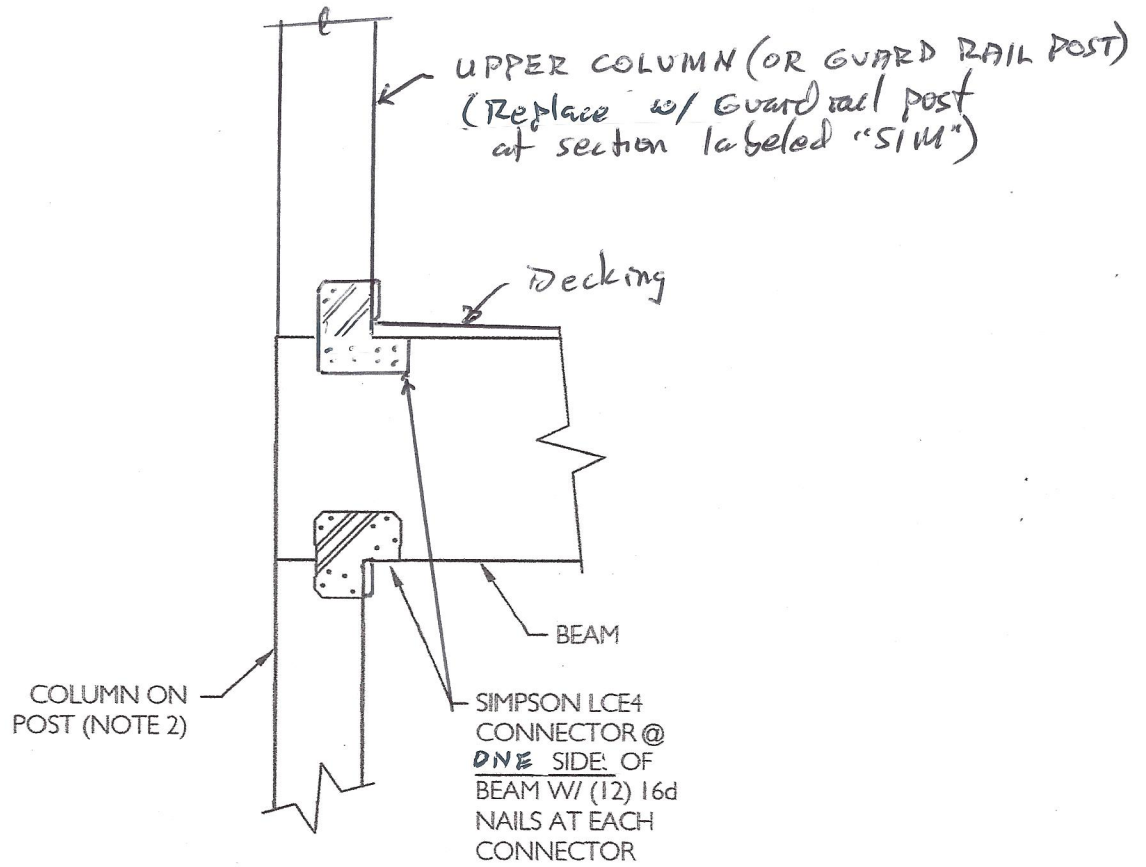 UPPER COLUMN (OR GUARD RAIL POST)
(Replace w/ Guard rail post
at section labeled "SIM")
Decking
BEAM
COLUMN ON
POST (NOTE 2)
SIMPSON LCE4
CONNECTOR @
ONE SIDE OF
BEAM W/ (12) 16d
NAILS AT EACH
CONNECTOR